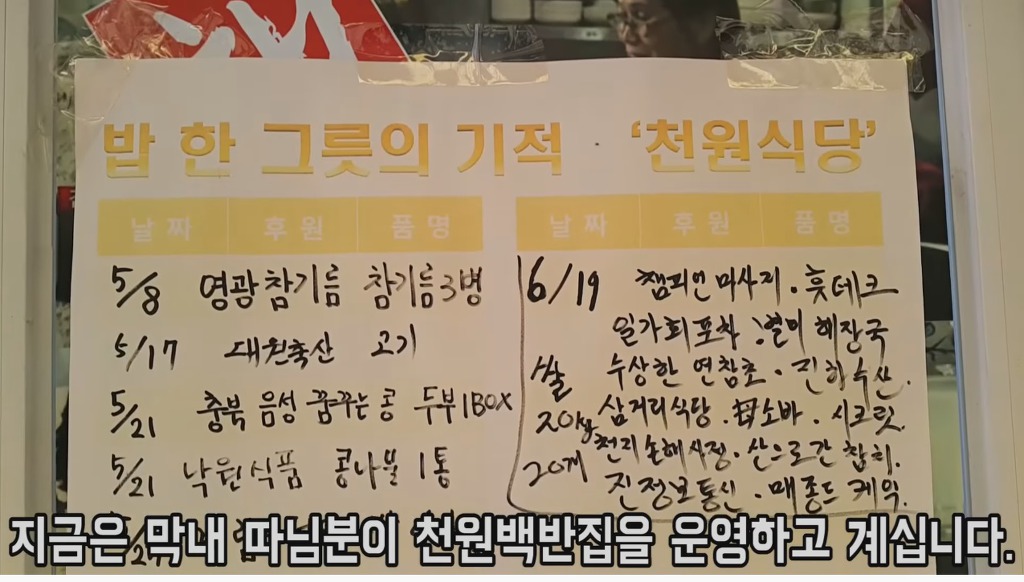 밥 한 그릇의 기적 · '천원식당'
날짜 후원 품명
5/8 영광참기름 참기름3병
5/17 대원축산 고기
5/21 충북 음성 꿈꾸는 콩 두부1BOX
5/21 낙원식품 콩나물 1통
날짜 후원 품명
6/19 챔피언마사지 · 휴테크
일가회포차 별미해장국
쌀 수상한 연참초 · 진하수산.
20kg 삼거리식당 · 母소바 · 시크릿.
20개 천지손해사정 · 산으로간 참치.
진정보통신 · 매종드케익.
지금은 막내 따님분이 천원백반집을 운영하고 계십니다.